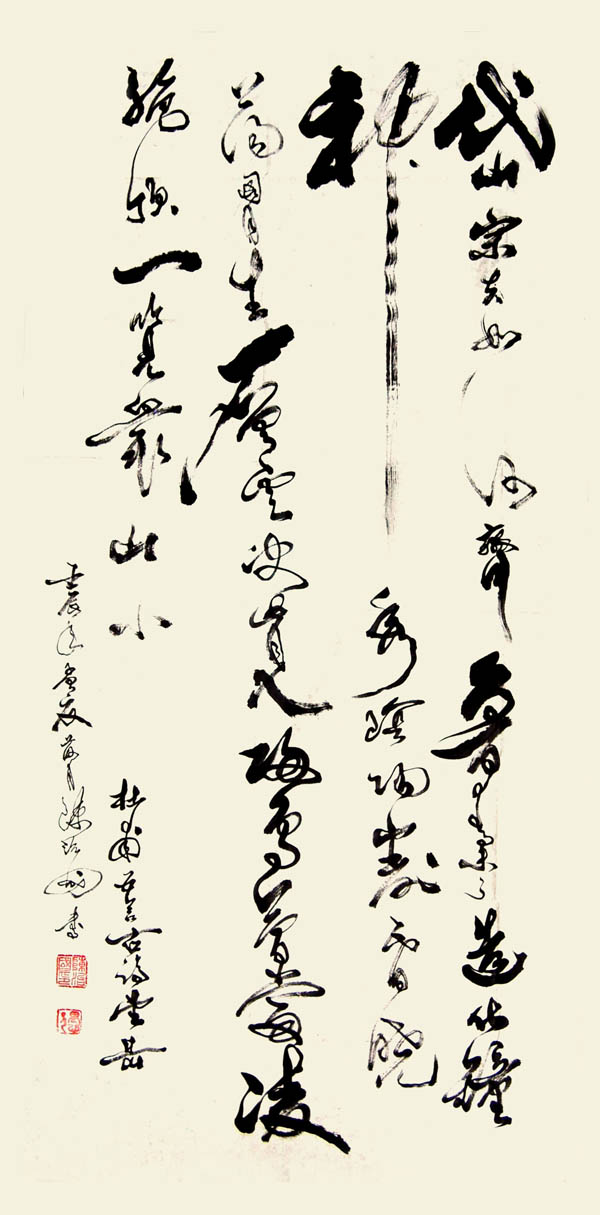 岱宗夫如何齊魯青未了造化鍾
神秀陰陽割昏曉
蕩胸生層雲決眥入歸鳥會當凌
絶頂一覽衆山小
杜甫五言古詩望岳
壬辰年孟夏月陳書